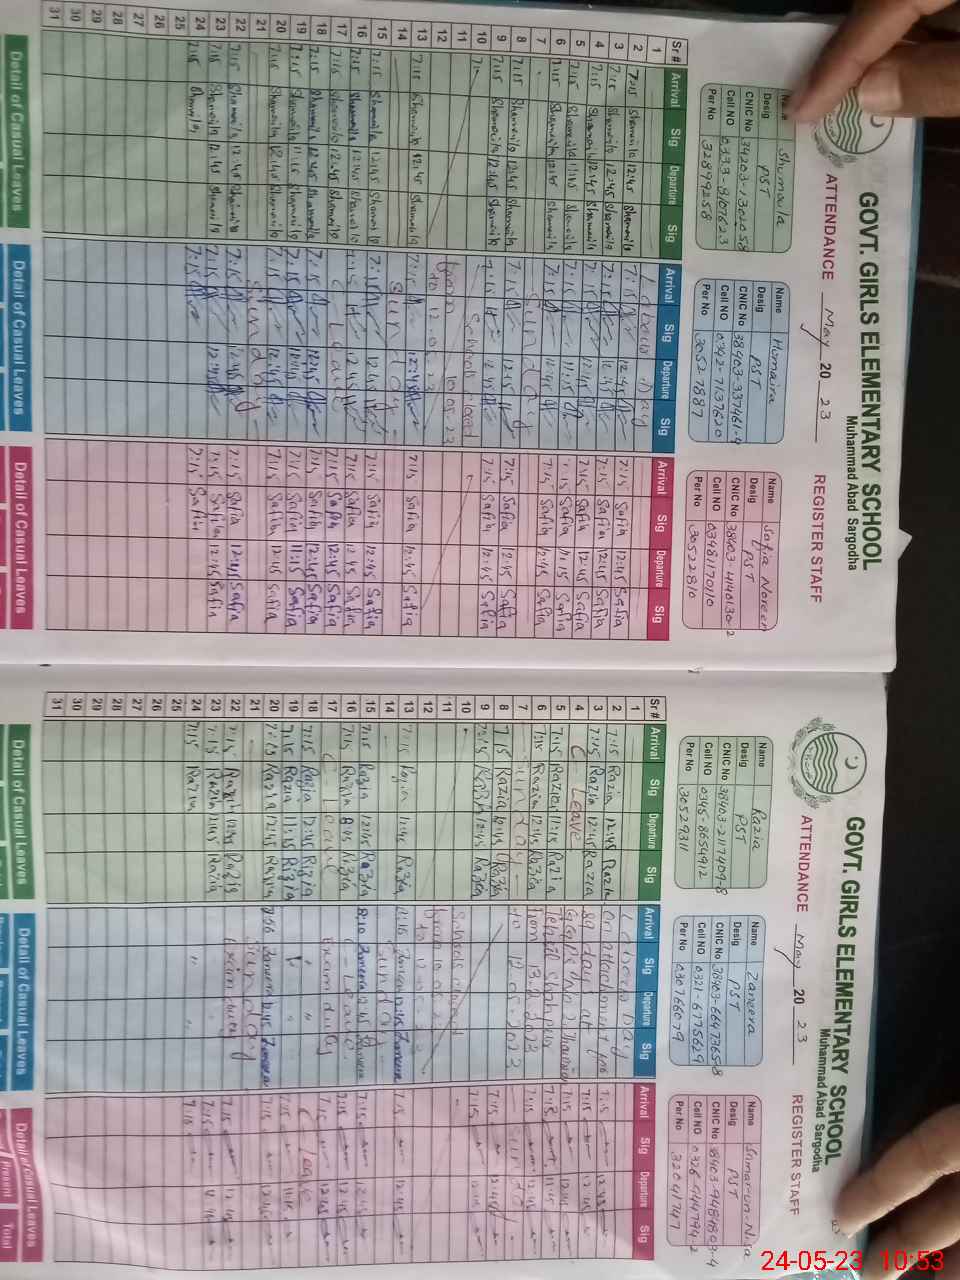 GOVT. GIRLS ELEMENTARY SCHOOL
Muhammad Abad Sargodha
ATTENDANCE May 20 23 REGISTER STAFF
Name Shumaila
Desig PST
CNIC No
Cell NO
Per No 32899258
Name Homaira
Desig PST
CNIC No 38403-3337461-4
Cell NO 0342-7137620
Per No 3052-7887
Name Safia Noreen
Desig PST
CNIC No 38403-4140130-2
Cell NO 03481170110
Per No 30522810
Sr# Arrival Sig Departure Sig Arrival Sig Departure Sig Arrival Sig Departure Sig
1 Labour Day
2 7:15 Shamaila 12:45 Shamaila 7:15 12:45 7:15 Safia 12:45 Safia
3 7:15 Shamaila 12:45 Shamaila 7:15 12:45 7:15 Safia 12:45 Safia
4 7:15 Shamaila 12:45 Shamaila 7:15 12:45 7:15 Safia 12:45 Safia
5 7:15 Shamaila 11:15 Shamaila 7:15 11:15 7:15 Safia 11:15 Safia
6 7:15 Shamaila 12:45 Shamaila 7:15 12:45 7:15 Safia 12:45 Safia
7 Sunday
8 7:15 Shamaila 12:45 Shamaila 7:15 12:45 7:15 Safia 12:45 Safia
9 7:15 Shamaila 12:45 Shamaila 7:15 12:45 7:15 Safia 12:45 Safia
10 School closed
11 from 10.05.23
12 to 12.05.23
13 7:15 Shamaila 12:45 Shamaila 7:15 12:45 7:15 Safia 12:45 Safia
14 Sunday
15 7:15 Shamaila 12:45 Shamaila 7:15 12:45 7:15 Safia 12:45 Safia
16 7:15 Shamaila 12:45 Shamaila 7:15 12:45 7:15 Safia 12:45 Safia
17 7:15 Shamaila 12:45 Shamaila C Leave 7:15 Safia 12:45 Safia
18 7:15 Shamaila 12:45 Shamaila 7:15 12:45 7:15 Safia 12:45 Safia
19 7:15 Shamaila 11:15 Shamaila 7:15 11:15 7:15 Safia 11:15 Safia
20 7:15 Shamaila 12:45 Shamaila 7:15 12:45 7:15 Safia 12:45 Safia
21 Sunday
22 7:15 Shamaila 12:45 Shamaila 7:15 12:45 7:15 Safia 12:45 Safia
23 7:15 Shamaila 12:45 Shamaila 7:15 12:45 7:15 Safia 12:45 Safia
24 7:15 Shamaila 7:15 7:15 Safia
25
26
27
28
29
30
31
Detail of Casual Leaves Detail of Casual Leaves Detail of Casual Leaves
GOVT. GIRLS ELEMENTARY SCHOOL
Muhammad Abad Sargodha
ATTENDANCE May 20 23 REGISTER STAFF
Name Razia
Desig PST
CNIC No 38403-2117409-8
Cell NO 0345-8654912
Per No 30529311
Name Zaneera
Desig PST
CNIC No 38403-6647365-8
Cell NO 0321-6775629
Per No 030766079
Name
Desig PST
CNIC No
Cell NO
Per No 32041747
Sr# Arrival Sig Departure Sig Arrival Sig Departure Sig Arrival Sig Departure Sig
1 Labour Day
2 7:15 Razia 12:45 Razia On attachment for 7:15 12:45
3 7:15 Razia 12:45 Razia 89 days at 7:15 12:45
4 C Leave 7:15 12:45
5 7:15 Razia 11:15 Razia Tehsil Shahpur 7:15 11:15
6 7:15 Razia 12:45 Razia from 13.2.2023 7:15 12:45
7 Sunday to 12.05.2023 Sunday
8 7:15 Razia 12:45 Razia 7:15 12:45
9 7:15 Razia 12:45 Razia 7:15 12:45
10 Schools closed
11 from 10.05.23
12 to 12.05.23
13 7:15 Razia 12:45 Razia 7:15 Zaneera 12:45 Zaneera 7:15 12:45
14 Sunday
15 7:15 Razia 12:45 Razia 8:10 Zaneera 12:45 Zaneera 7:15 12:45
16 7:15 Razia Razia C-Leave 7:15 12:45
17 C Leave Exam duty 7:15 12:45
18 7:15 Razia 12:45 Razia " " C Leave
19 7:15 Razia 11:15 Razia 7:15 11:15
20 7:15 Razia 12:45 Razia Zaneera 12:45 Zaneera 7:15 12:45
21 Sunday
22 7:15 Razia 12:45 Razia Exam duty 7:15 12:45
23 7:15 Razia 12:45 Razia 7:15
24 7:15 Razia " " 7:15
25
26
27
28
29
30
31
Detail of Casual Leaves Detail of Casual Leaves Detail of Casual Leaves
Present Total
24-05-23 10:53